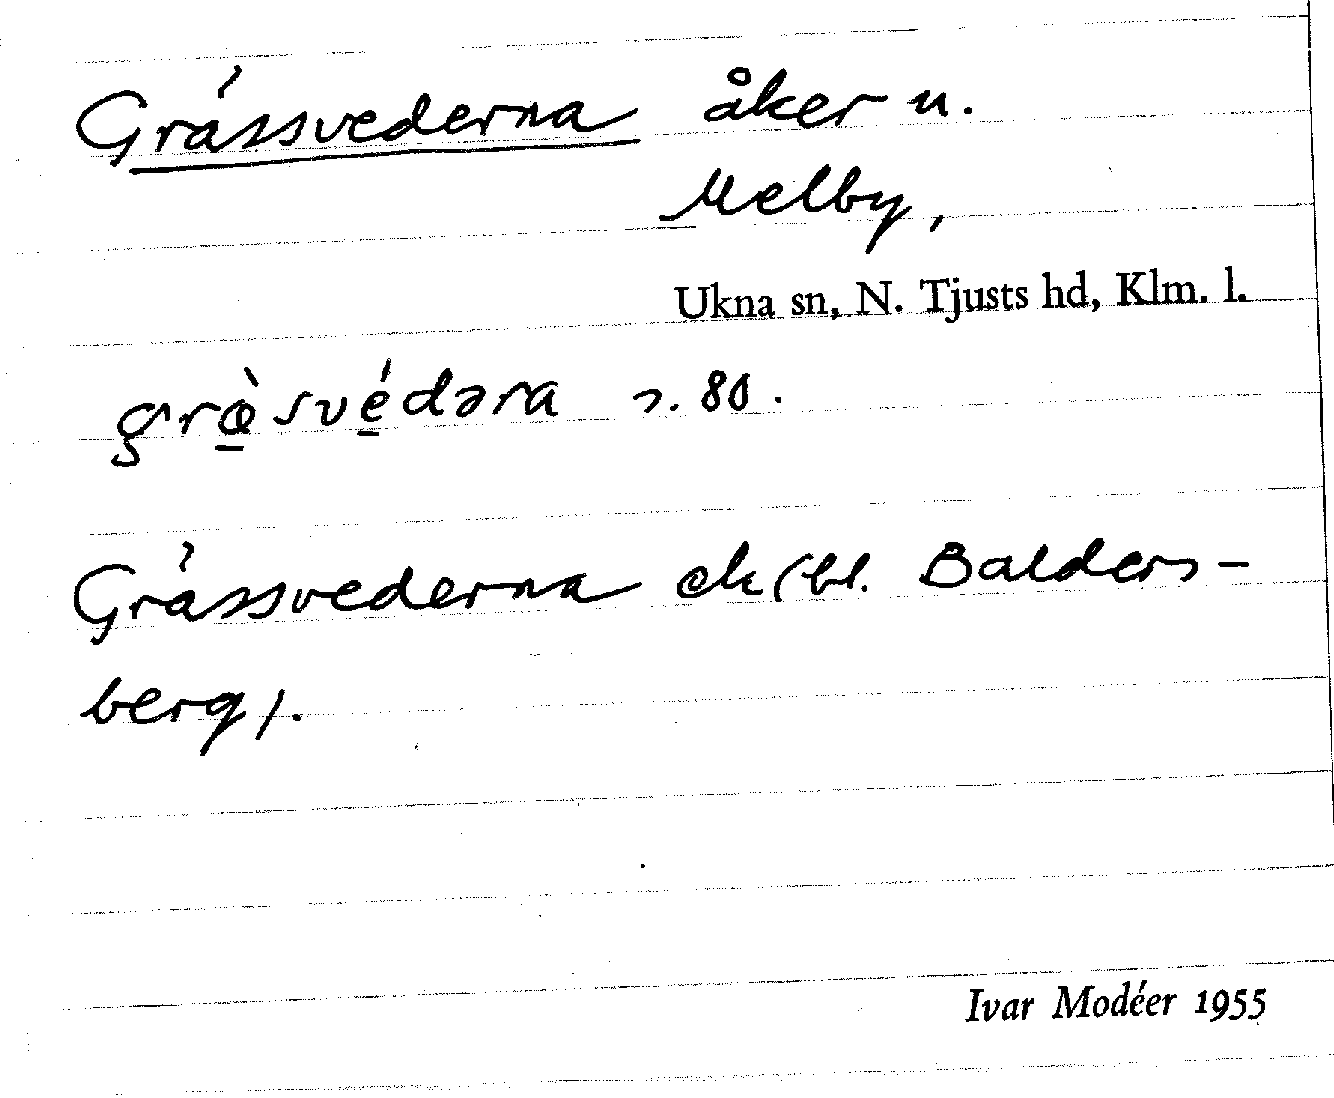 Grássvederna åker u.
Melby,
Ukna sn, N. Tjusts hd, Klm. l.
Grássvederna ek (bl. Balders-
berg).
Ivar Modéer 1955